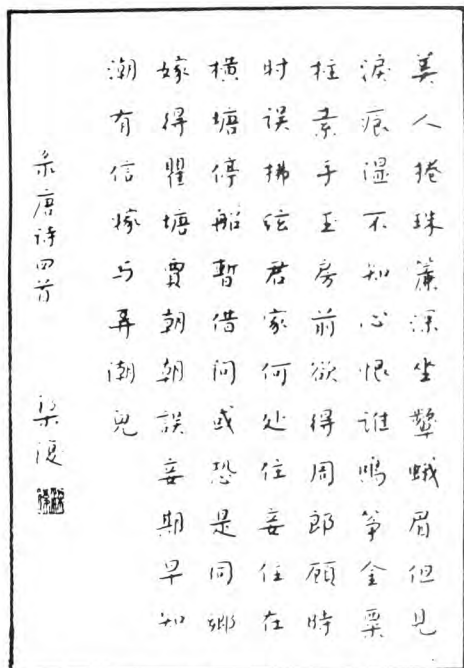 美人捲珠簾深坐顰蛾眉但見
淚痕濕不知心恨誰鳴筝金粟
柱素手玉房前欲得周郎顧時
时误拂弦君家何处住妾住在
横塘停船暫借问或恐是同鄉
嫁得瞿塘賈朝朝誤妾期早知
潮有信嫁与弄潮兒
录唐诗四首